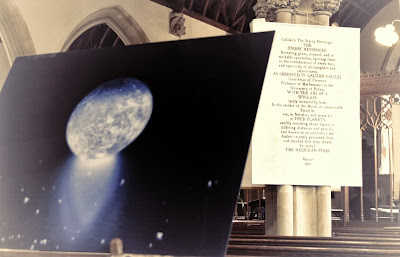 Galileo's The Starry Messenger
THE
STARRY MESSENGER
Revealing great, unusual, and re-
markable spectacles, opening these
to the consideration of every man,
and especially of philosophers and
astronomers;
AS OBSERVED BY GALILEO GALILEI
Gentleman of Florence
Professor of Mathematics in the
University of Padua,
WITH THE AID OF A
SPYGLASS
lately invented by him,
In the surface of the Moon, in innumerable
Fixed
in Nebulae, and above all
in FOUR PLANETS
swiftly revolving about Jupiter at
differing distances and periods,
and known to no one before the
Author recently perceived them
and decided that they should
be named
THE MEDICEAN STARS
Venice